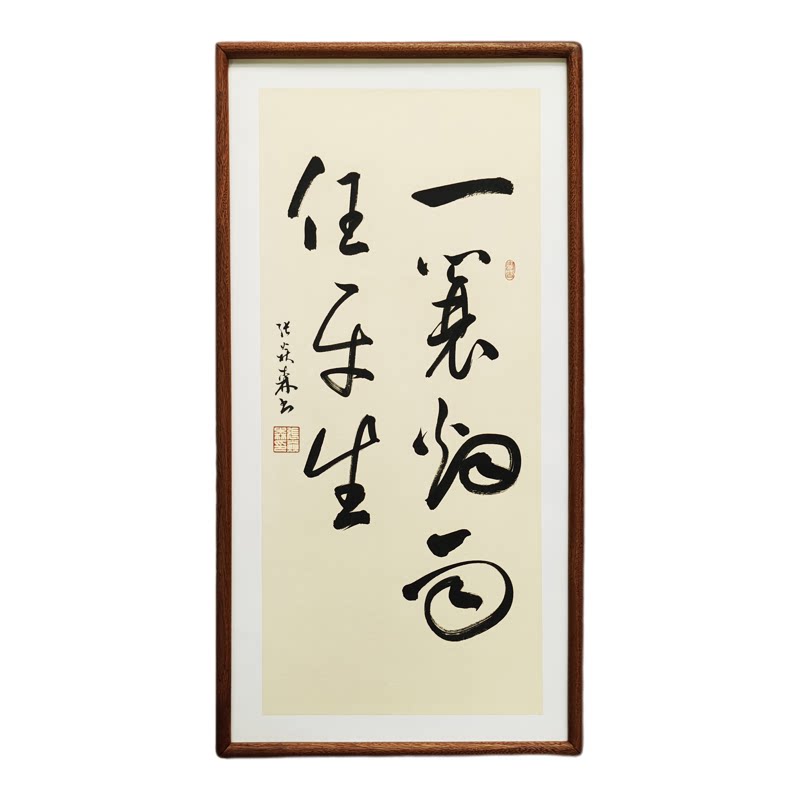 一蓑烟雨
任平生
张焱森书